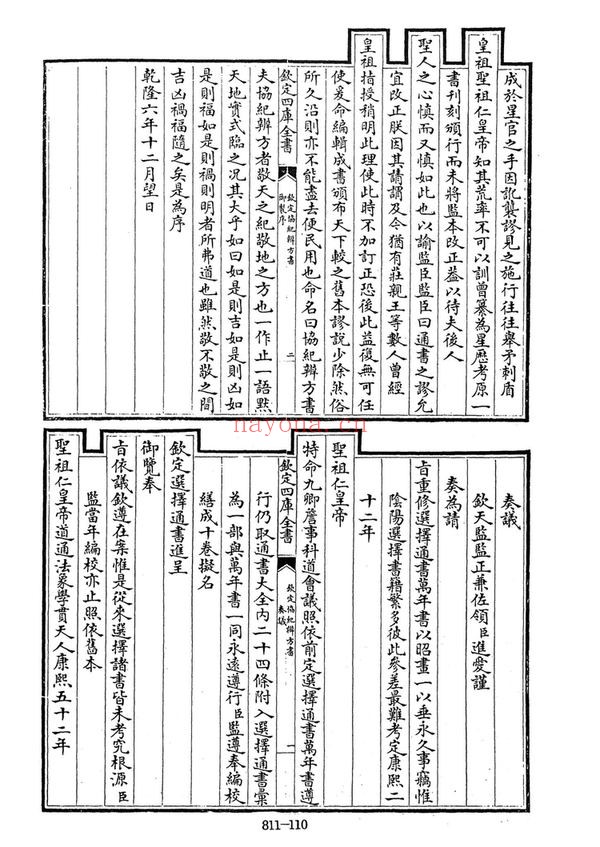 成於星官之手因訛襲謬見之施行往往舉矛刺盾
皇祖聖祖仁皇帝知其荒率不可以訓曾纂為星歴考原一
書刊刻頒行而未將監本改正葢以待夫後人
聖人之心慎而又慎如此也以諭監臣監臣曰通書之謬允
宜改正朕因其請謂及今猶有莊親王等數人曾經
皇祖指授稍明此理使此時不加訂正恐後此益復無可任
使爰命編輯成書頒布天下較之舊本謬説少除然俗
所久沿則亦不能盡去便民用也命名曰協紀辨方書
欽定四庫全書
欽定協紀辨方書
御製序
二
夫協紀辨方者敬天之紀敬地之方也一作止一語黙
天地實式臨之況其大乎如曰如是則吉如是則凶如
是則福如是則禍則明者所弗道也雖然敬不敬之間
吉凶禍福隨之矣是為序
乾隆六年十二月望日
奏議
欽天監監正兼佐領臣進愛謹
奏為請
㫖重修選擇通書萬年書以昭畫一以垂永久事竊惟
陰陽選擇書籍繁多彼此參差最難考定康熙二
十二年
聖祖仁皇帝
特命九卿詹事科道會議照依前定選擇通書萬年書遵
欽定四庫全書
欽定協紀辨方書
奏議
一
行仍取通書大全內二十四條附入選擇通書彙
為一部與萬年書一同永遠遵行臣監遵奉編校
繕成十卷擬名
欽定選擇通書進呈
御覽奉
㫖依議欽遵在案惟是從來選擇諸書皆未考究根源臣
監當年編校亦止照依舊本
聖祖仁皇帝道通法象學貫天人康熙五十二年
811-110
nayona.cn